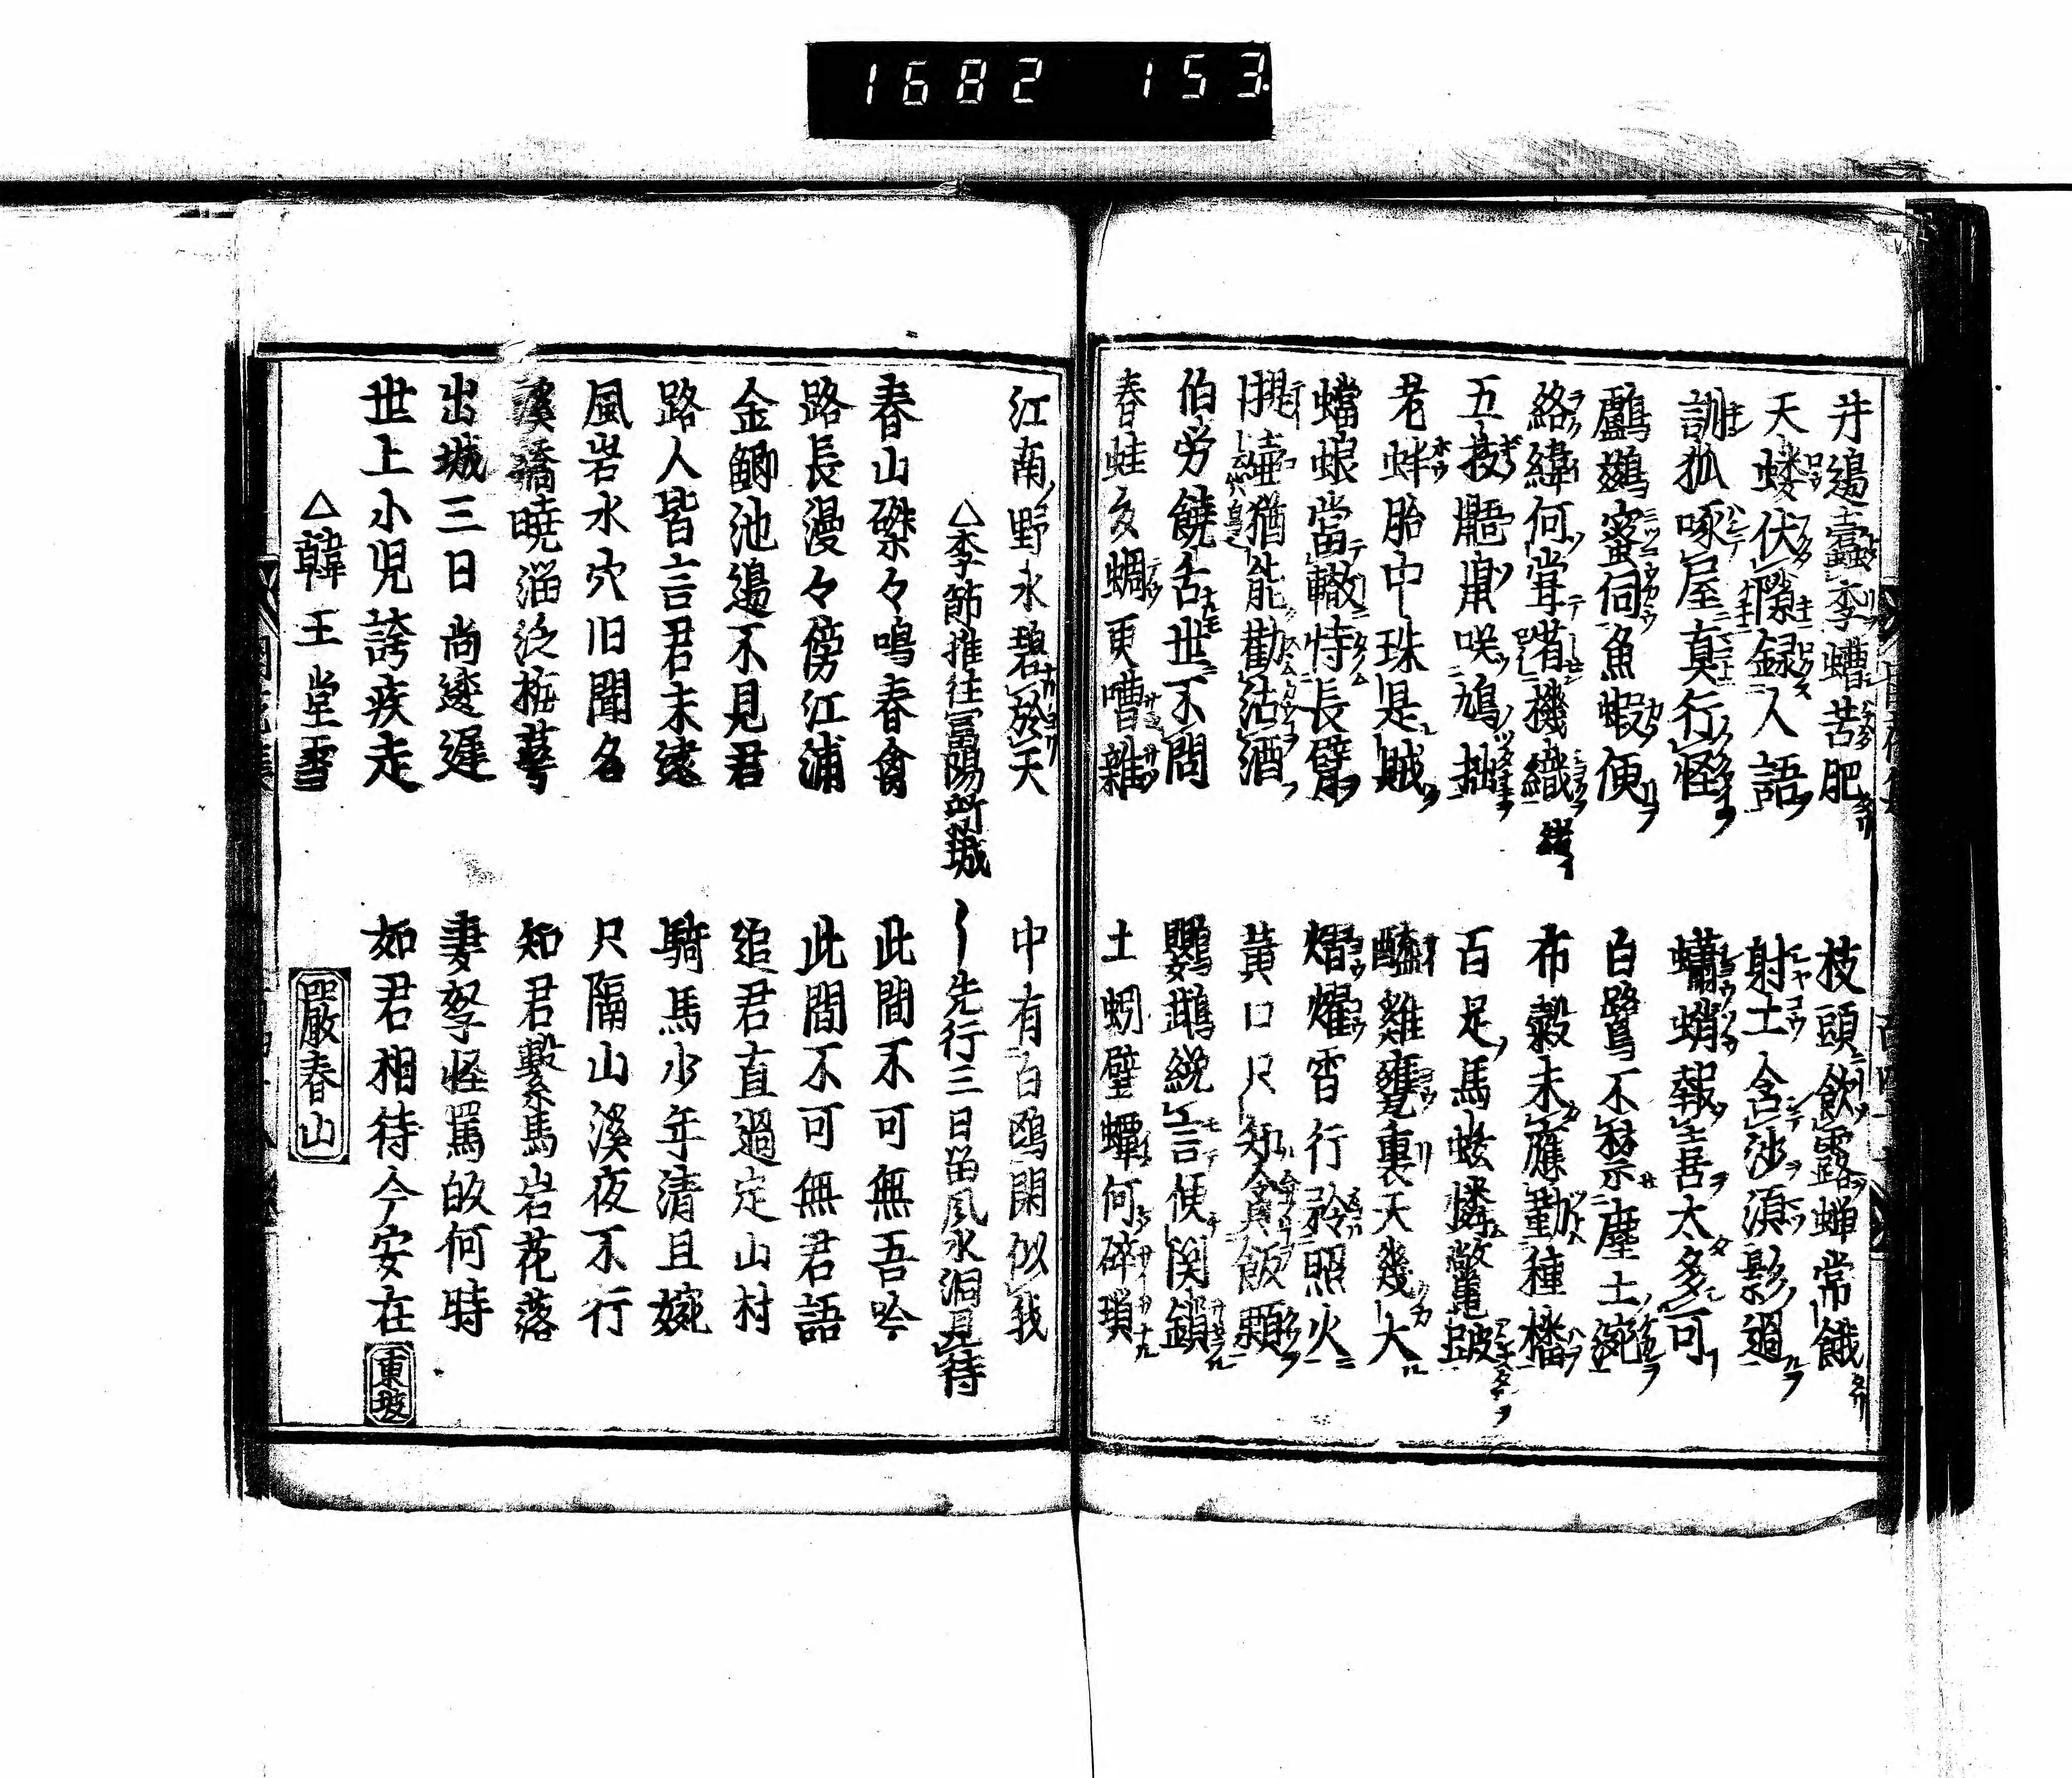 1682 153.
井邉蠹李螬苦肥 枝頭飲露蟬常餓
天螻伏隙録人語 射工含沙湏影過
訓狐啄屋真行怪 蠨蛸報喜太多可
鸕鷀蜜伺魚蝦便 白鷺不禁塵土涴
絡緯何甞省機織 布穀未應勤種播
五技鼯鼠咲鳩拙 百足馬蚿憐鼈跛
老蚌胎中珠是賊 醯雞甕裏天幾大
蟷蜋當轍恃長臂 熠燿宵行矜照火
提壺猶能勸沽酒 黃口只知貪飯顆
伯労饒舌世不問 鸚鵡纔言便関鎖
春蛙夏蜩更嘈雜 土蚓壁蟫何碎瑣
江南野水碧於天 中有白鷗閑似我
△李節推往富陽新城 先行三日畄風水洞見待
春山磔々鳴春禽 此間不可無吾吟
路長漫々傍江浦 此間不可無君語
金鯽池邉不見君 追君直過定山村
路人皆言君未遠 騎馬少年清且婉
風岩水穴旧聞名 只隔山溪夜不行
溪橋曉溜泛梅萼 知君繫馬岩花落
出城三日尚逶遲 妻孥怪罵皈何時
世上小児誇疾走 如君相待今安在 東坡
△韓王堂雪 嚴春山